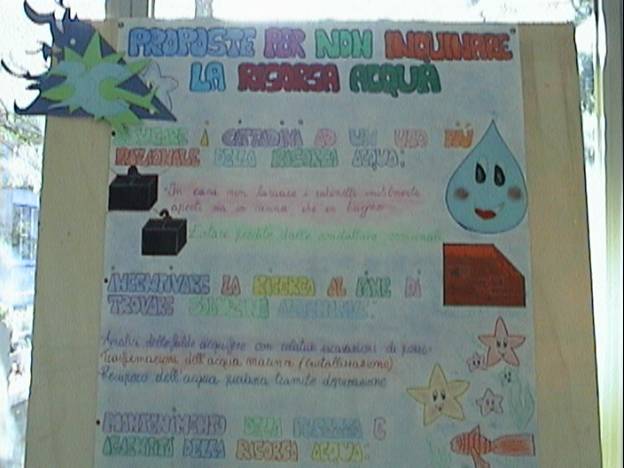 PROPOSTE PER NON INQUINARE
LA RISORSA ACQUA
I CITTADINI AD UN USO PIÙ
RAZIONALE DELLA RISORSA ACQUA:
In casa non lasciare i rubinetti inutilmente
aperti sia in cucina che in bagno
Evitare perdite dalle condutture comunali
INCENTIVARE LA RICERCA AL FINE DI
TROVARE SOLUZIONI ALTERNATIVE:
Analisi delle falde acquifere con relative escavazioni di pozzi
Trasformazioni dell'acqua marina
Recupero dell'acqua piovana tramite depurazione
MANTENIMENTO DELLA PUREZZA E
DELLA RISORSA ACQUA: